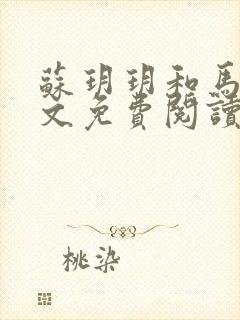 蘇玥玥和馬
文免費閱讀
桃染